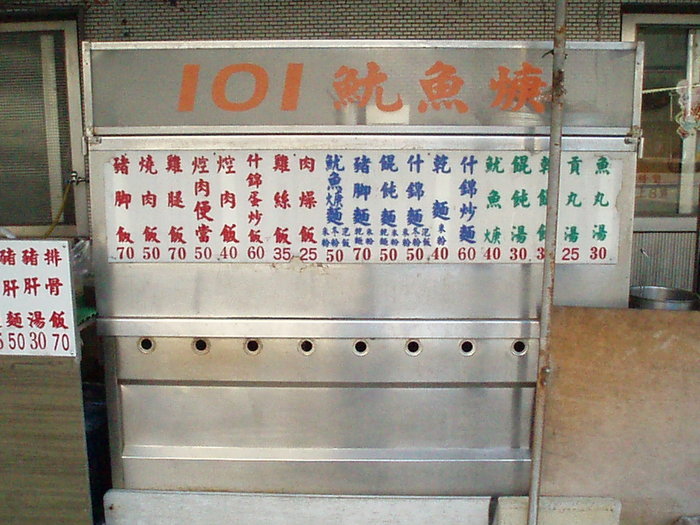 101 魷魚焿
豬脚飯 70
燒肉飯 50
雞腿飯 70
焢肉便當 50
焢肉飯 40
什錦蛋炒飯 60
雞絲飯 35
肉燥飯 25
魷魚焿麵 米粉 冬粉 泡飯 50
豬脚麵 乾麵 米粉 70
餛飩麵 乾麵 米粉 50
什錦麵 米粉 冬粉 泡飯 50
乾麵 米粉 40
什錦炒麵 60
魷魚焿 40
餛飩湯 30
貢丸湯 25
魚丸湯 30
豬肝麵 50
豬肝湯 30
排骨飯 70